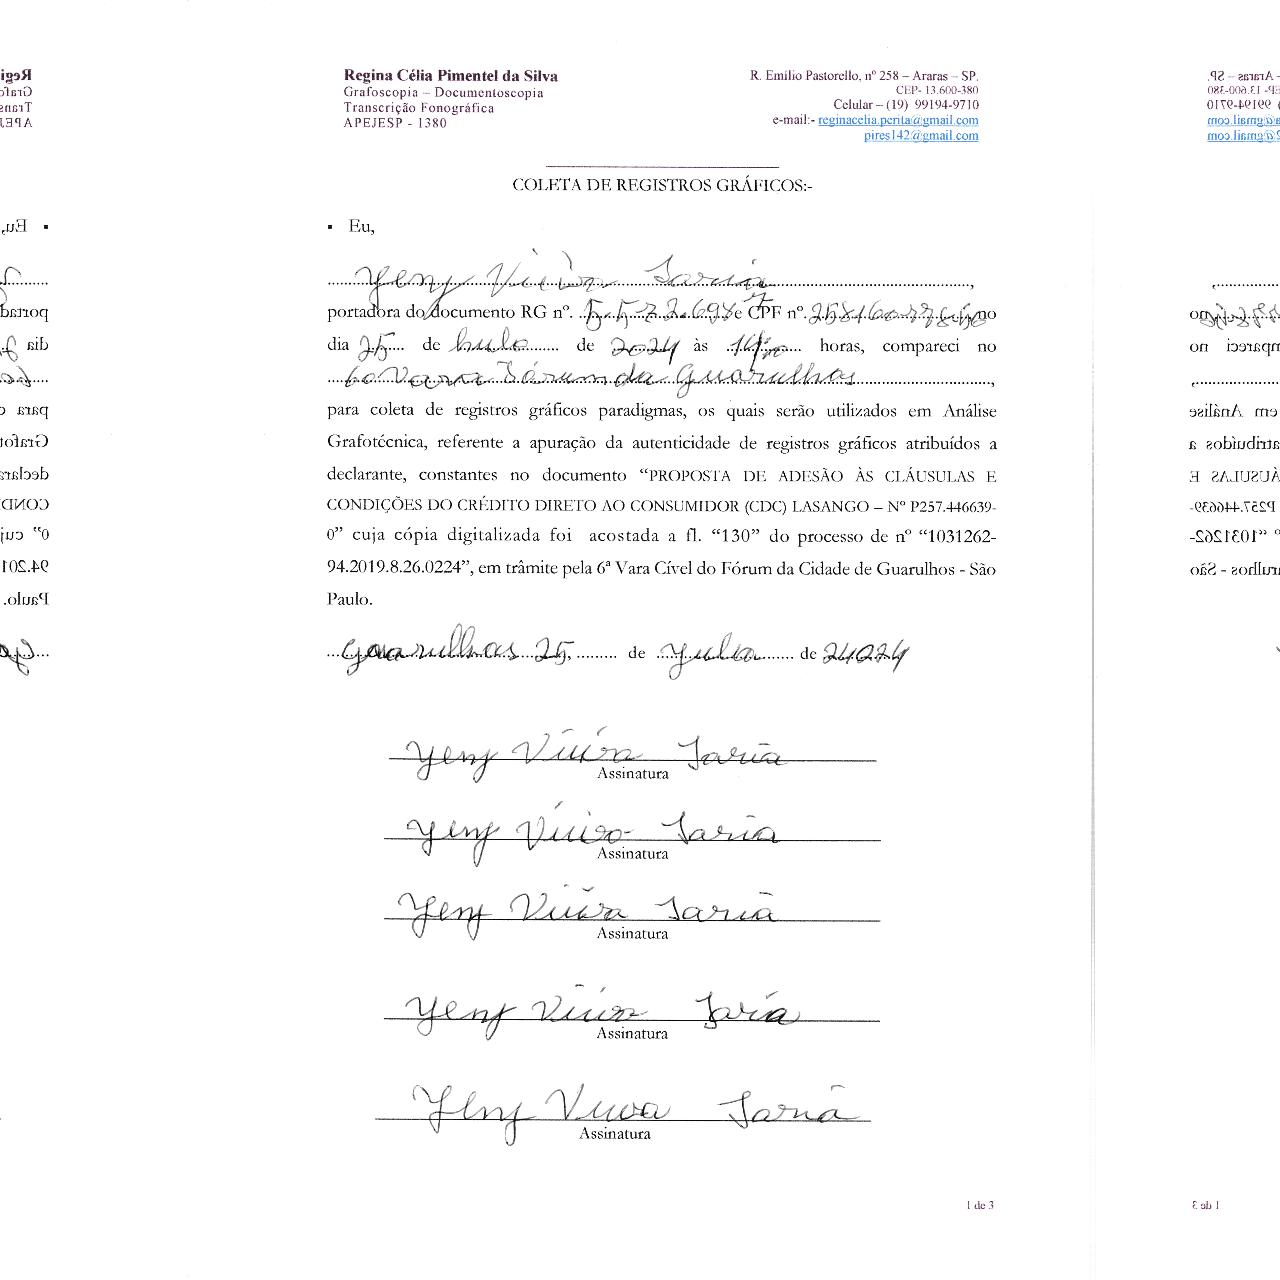 Regina Célia Pimentel da Silva
Grafoscopia – Documentoscopia
Transcrição Fonográfica
APEJESP - 1380
R. Emílio Pastorello, nº 258 – Araras – SP.
CEP- 13.600-380
Celular – (19) 99194-9710
e-mail:- reginacelia.perita@gmail.com
pires142@gmail.com
COLETA DE REGISTROS GRÁFICOS:-
▪ Eu,
Yeny Vieira Faria,
portadora do documento RG nº. e CPF nº. no
dia 25 de de 2024 às horas, compareci no
Vara Fórum da Guarulhos,
para coleta de registros gráficos paradigmas, os quais serão utilizados em Análise
Grafotécnica, referente a apuração da autenticidade de registros gráficos atribuídos a
declarante, constantes no documento “PROPOSTA DE ADESÃO ÀS CLÁUSULAS E
CONDIÇÕES DO CRÉDITO DIRETO AO CONSUMIDOR (CDC) LASANGO – Nº P257.446639-
0” cuja cópia digitalizada foi acostada a fl. “130” do processo de nº “1031262-
94.2019.8.26.0224”, em trâmite pela 6ª Vara Cível do Fórum da Cidade de Guarulhos - São
Paulo.
Guarulhos 25, de de
Yeny Vieira Faria
Assinatura
Yeny Vieira Faria
Assinatura
Yeny Vieira Faria
Assinatura
Yeny Vieira Faria
Assinatura
Yeny Vieira Faria
Assinatura
1 de 3